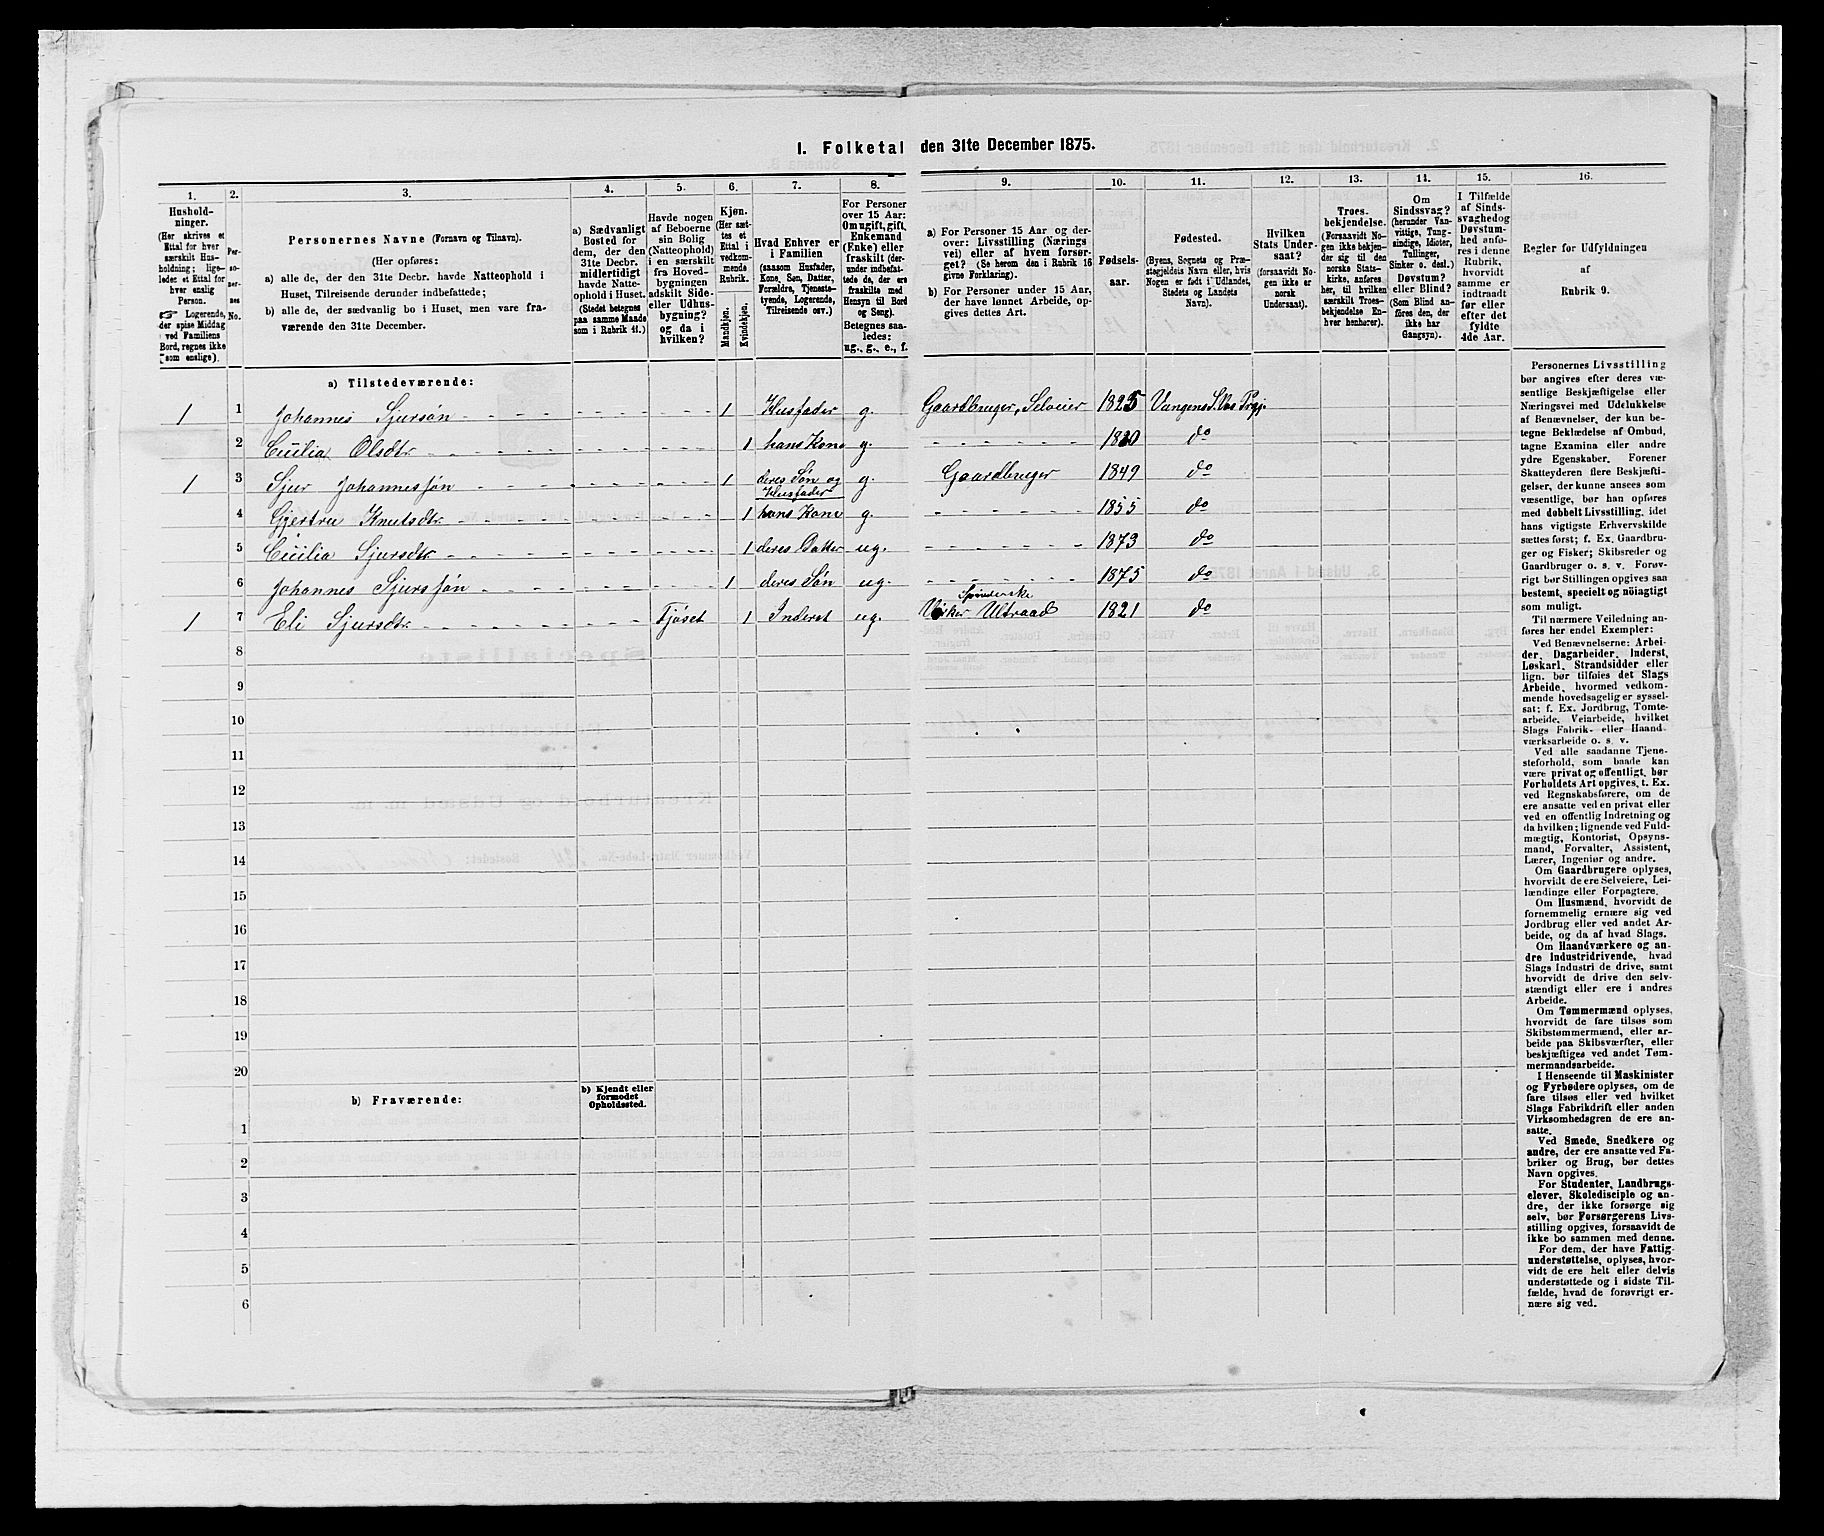 I. Folketal den 31te December 1875.
1. 2. 3. 4. 5. 6. 7. 8. 9. 10. 11. 12. 13. 14. 15. 16.
Hushold-
ninger.
(Her skrives et
Ettal for hver
særskilt Hus-
holdning; lige-
ledes et Ettal for
hver enslig
Person.
☞ Logerende,
der spise Middag
ved Familiens
Bord, regnes ikke
som enslige).
Per-
so-
ner-
nes
No.
Personernes Navne (Fornavn og Tilnavn).
(Her opføres:
a) alle de, der den 31te Decbr. havde Natteophold i
Huset, Tilreisende derunder indbefattede;
b) alle de, der sædvanlig bo i Huset, men vare fra-
værende den 31te December.
a) Sædvanligt
Bosted for
dem, der den
31te Decbr.
midlertidigt
havde Natte-
ophold i Huset.
(Stedet betegnes
paa samme Maade
som i Rubrik 11.)
Havde nogen
af Beboerne
sin Bolig
(Natteophold)
i en særskilt
fra Hoved-
bygningen
adskilt Side-
eller Udhus-
bygning?
og da i
hvilken?
Kjøn.
(Her sæt-
tes et
Ettal i
vedkom-
mende
Rubrik.
Mandkjøn.
Kvindekjøn.
Hvad Enhver er
i Familien
(saasom Husfader,
Kone, Søn, Datter,
Forældre, Tjeneste-
tyende, Logerende,
Tilreisende osv.)
For Personer
over 15 Aar:
Om ugift, gift,
Enkemand
(Enke) eller
fraskilt (der-
under indbefat-
tede de, der ere
fraskilte med
Hensyn til Bord
og Seng).
Betegnes saa-
ledes:
ug., g., e., f.
a) For Personer 15 Aar og der-
over: Livsstilling (Nærings
vei) eller af hvem forsør-
get? (Se herom den i Rubrik 16
givne Forklaring).
b) For Personer under 15 Aar,
der have lønnet Arbeide, op-
gives dettes Art.
Fødsels-
aar.
Fødested.
(Byens, Sognets og Præ-
stegjeldets Navn eller, hvis
Nogen er født i Udlandet,
Stedets og Landets
Navn).
Hvilken
Stats Under-
saat?
(forsaavidt No-
gen ikke er
norsk
Undersaat).
Troes-
bekjendelse.
(Forsaavidt No-
gen ikke bekjen-
der sig til den
norske Stats-
kirke, anføres
her, til hvilken
særskilt Troes-
bekjendelse En-
hver henhører).
Om
Sindssvag?
(herunder Van-
vittige, Tung-
sindige, Idioter,
Tullinger,
Sinker o. desl.)
Døvstum?
eller Blind?
(Som Blind an-
føres den, der
ikke har
Gangsyn).
I Tilfælde
af Sinds-
svaghed og
Døvstum-
hed anfø-
res i denne
Rubrik,
hvorvidt
samme er
indtraadt
før eller
efter det
fyldte
4de Aar.
Regler før Udfyldningen
af
Rubrik 9.
a) Tilstedeværende:
1 1 Johannes Sjursøn 1 Husfader g. Gaardbruger, Selveier 1825 Vangens S. Vos Prgj.
2 Cicilia Olsdtr 1 hans Kone g. 1820 do
1 3 Sjur Johannessøn 1 deres Søn og Husfader g. Gaardbruger 1849 do
4 Gjertru Knutsdtr 1 hans Kone g. 1855 do
5 Cicilia Sjursdtr 1 deres Datter ug. 1873 do
6 Johannes Sjurssøn 1 deres Søn ug. 1875 do
1 7 Eli Sjursdtr. Fjøset 1 Inderst ug. Spinderske Ultraad 1821 do
8
9
10
11
12
13
14
15
16
17
18
19
20
b) Fraværende:
b) Kjendt eller
formodet
Opholdssted.
1
2
3
4
5
6
Personernes Livsstilling
bør angives efter deres væ-
sentlige Beskjæftigelse eller
Næringsvei med Udelukkelse
af Benævnelser, der kun be-
tegne Beklædelse af Ombud,
tagne Examina eller andre
ydre Egenskaber. Forener
Skatteyderen flere Beskjæfti-
gelser, der kunne ansees som
væsentlige, bør han opføres
med dobbelt Livsstilling, idet
hans vigtigste Erhvervskilde
sættes først; f. Ex. Gaardbru-
ger og Fisker; Skibsreder og
Gaardbruger o. s. v. Forøv-
rigt bør Stillingen opgives saa
bestemt, specielt og nöiagtig
som muligt.
Til nærmere Veiledning an-
føres her endel Exempler:
Ved Benævnelserne: Arbei-
der, Dagarbeider, Inderst,
Løskarl, Strandsidder eller
lign. bør tilføies det Slags
Arbeide, hvormed vedkom-
mende hovedsagelig er syssel-
sat; f. Ex. Jordbrug, Tomte-
arbeide, Veiarbeide, hvilket
Slags Fabrik- eller Haand
værksarbeide o. s. v.
Ved alle saadanne Tjene-
steforhold, som baade kan
være privat og offentligt, bør
Forholdets Art opgives, t. Ex.
ved Regnskabsførere, om de
ere ansatte ved en privat eller
ved en offentlig Indretning og
da hvilken; lignende ved Fuld-
mægtig, Kontorist, Opsyns-
mand, Forvalter, Assistent,
Lærer, Ingeniør og andre.
Om Gaardbrugere oplyses,
hvorvidt de ere Selveiere, Lei-
lændinge eller Forpagtere.
Om Husmænd, hvorvidt de
fornemmelig ernære sig ved
Jordbrug eller ved andet Ar-
beide, og da af hvad Slags.
Om Haandværkere og an-
dre Industridrivende, hvad
Slags Industri de drive, samt
hvorvidt de drive den selv-
stændigt eller ere i andres
Arbeide.
Om Tømmermænd oplyses,
hvorvidt de fare tilsøs som
Skibstømmermænd, eller ar-
beide paa Skibsværfter, eller
beskjæftiges ved andet Tøm-
mermandsarbeide.
I Henseende til Maskinister
og Fyrbødere oplyses, om de
fare tilsøs eller ved hvilket
Slags Fabrikdrift eller anden
Virksomhedsgren de ere an-
satte.
Ved Smede, Snedkere og
andre, der ere ansatte ved Fa-
briker og Brug, bør dettes
Navn opgives.
For Studenter, Landbrugs-
elever, Skoledisciple og an-
dre, der ikke forsørge sig
selv, bør Forsørgerens Livs-
stilling opgives, forsaavidt de
ikke bo sammen med denne.
For dem, der have Fattig-
understøttelse, oplyses, hvor-
vidt de ere helt eller delvis
understøttede og i sidste Til-
fælde, hvad de forøvrigt er-
nære sig ved.